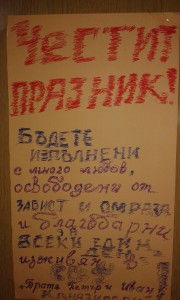 ЧЕСТИТ
ПРАЗНИК!
БЪДЕТЕ
ИЗПЪЛНЕНИ
с много любов,
освободени от
ЗАВИСТ и ОМРАЗА
и благодарни
в
ВСЕКИ ЕДИН
ДЕН
"Братя Петър и Иван